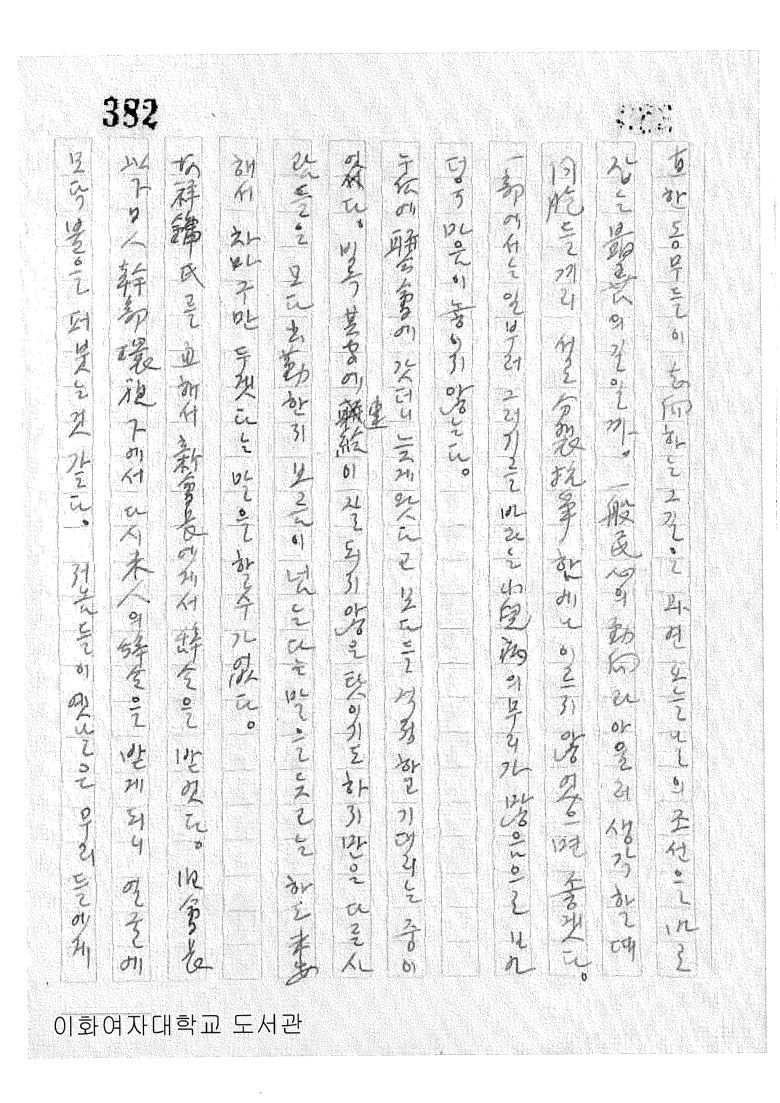 382
한 동무들이 志向하는 그 길은 과연 오늘날의 조선을 바로
잡는 最善의 길일까。 一般民心의 動向과 아울러 생각할 때
同胞들끼리 서로 分裂抗爭함에나 이르지 않었으면 좋겠다。
一部에서는 일부러 그러기를 바라는 病의 무리가 많음으로 보아
덩구 마음이 놓이지 않는다。
에 聯合會에 갓더니 늦게 왓다고 모다들 걱정하고 기대리는 중이
였다。 비록 其실에 連絡이 잘 되지 않은 탓이기도 하지만은 다른 사
람들은 모다 出勤한지 보름이 넘는다는 말을 듯고는 하도 未安
해서 차마 구만 두겟다는 말을 할 수가 없다。
祥鎬氏를 通해서 新會長에게서 辭令을 받엇다。 旧會長
以下 日人 幹部 環視下에서 다시 未人의 辭令을 받게 되니 얼굴에
모닥불을 퍼붓는 것 같다。 저놈들이 옛날은 우리들에게
이화여자대학교 도서관